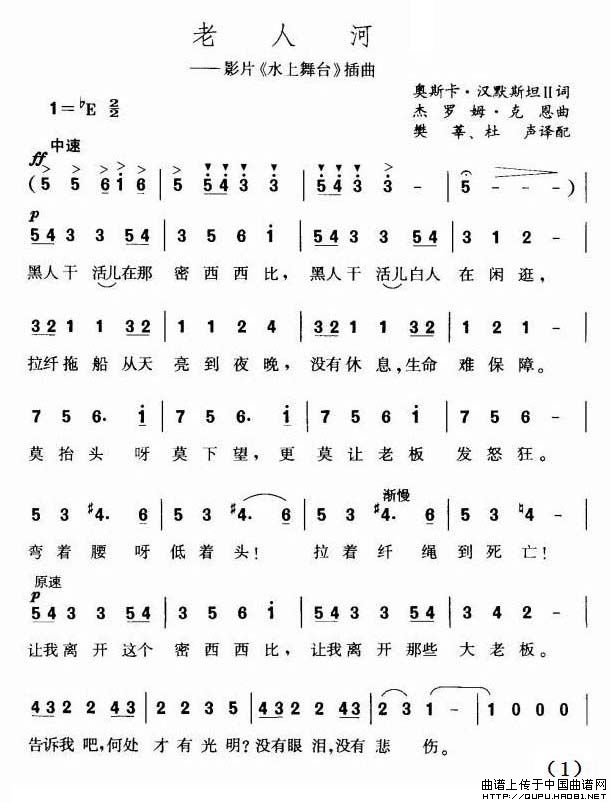 老人河
——影片《水上舞台》插曲
奥斯卡·汉默斯坦II词
1=♭E 2/2
杰罗姆·克恩曲
樊莘、杜声译配
中速
ff
( 5 5 6 i 6 | 5 5 4 3 3 | 5 4 3 3 - - | 5 - - )
p
5 4 3 3 5 4 | 3 5 6 i | 5 4 3 3 5 4 | 3 1 2 - |
黑人干活儿在那密西西比，黑人干活儿白人在闲逛，
3 2 1 1 3 2 | 1 1 2 4 | 3 2 1 1 3 2 | 1 2 1 - |
拉纤拖船从天亮到夜晚，没有休息，生命难保障。
7 5 6. i | 7 5 6. i | 7 5 6 i | 7 5 6 - |
莫抬头呀莫下望，更莫让老板发怒狂。
渐慢
5 3 #4. 6 | 5 3 #4. 6 | 5 3 #4. 6 | 5 3 ♮4 - |
弯着腰呀低着头！拉着纤绳到死亡！
原速
p
5 4 3 3 5 4 | 3 5 6 i | 5 4 3 3 5 4 | 3 1 2 - |
让我离开这个密西西比，让我离开那些大老板。
4 3 2 2 4 3 | 2 2 3 5 | 4 3 2 2 4 3 | 2 3 1 - | 1 0 0 0 |
告诉我吧，何处才有光明？没有眼泪，没有悲伤。
(1)
曲谱上传于中国曲谱网
HTTP://QUPU.HAO81.NET